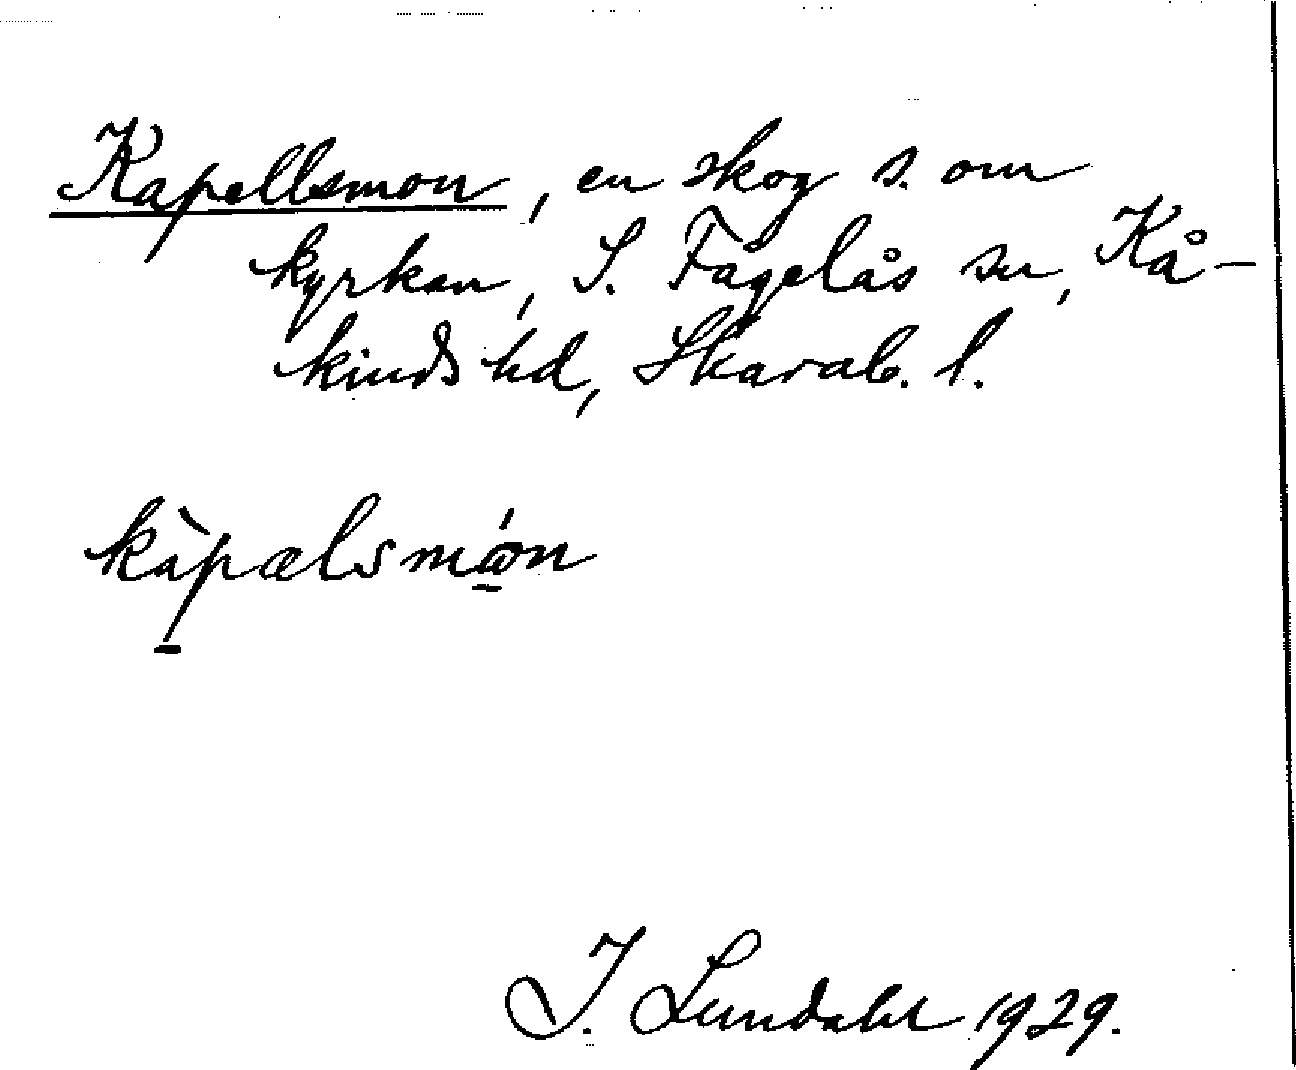 Kapellsmon, en skog s. om
kyrkan, S. Fågelås sn, Kå-
kinds hd, Skarab. l.
kàpælsmón
I. Lundahl 1929.